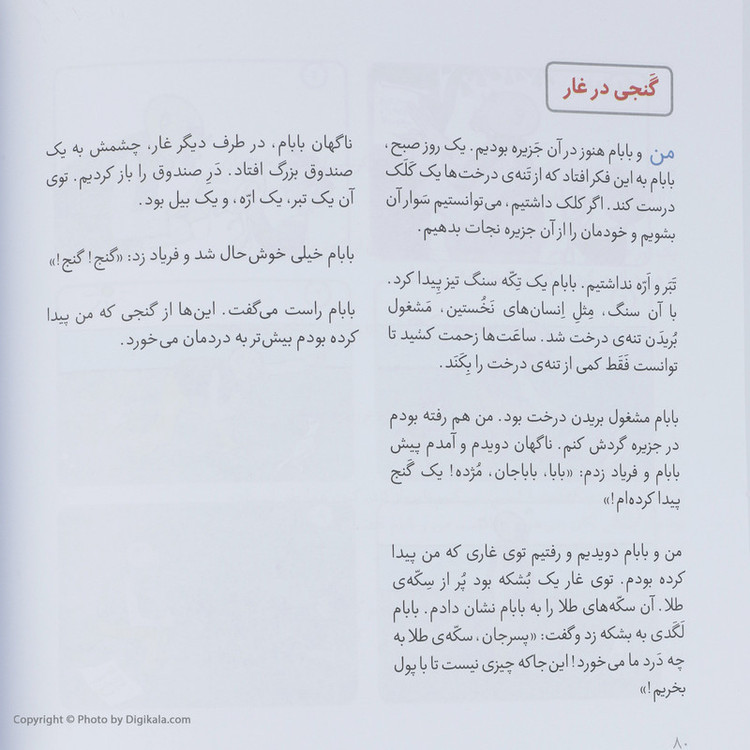 گَنجی در غار
من و بابام هنوز در آن جَزیره بودیم. یک روز صبح،
بابام به این فکر افتاد که از تَنه‌ی درخت‌ها یک کَلَک
درست کند. اگر کلک داشتیم، می‌توانستیم سَوار آن
بشویم و خودمان را از آن جزیره نجات بدهیم.
تَبَر و اَرّه نداشتیم. بابام یک تکّه سنگ تیز پیدا کرد.
با آن سنگ، مِثلِ اِنسان‌های نَخُستین، مَشغول
بُریدَن تنه‌ی درخت شد. ساعَت‌ها زحمت کشید تا
توانست فَقَط کمی از تنه‌ی درخت را بِکَنَد.
بابام مشغول بریدن درخت بود. من هم رفته بودم
در جزیره گردش کنم. ناگهان دویدم و آمدم پیش
بابام و فریاد زدم: «بابا، باباجان، مُژده! یک گَنج
پیدا کرده‌ام!»
من و بابام دویدیم و رفتیم توی غاری که من پیدا
کرده بودم. توی غار یک بُشکه بود پُر از سِکّه‌ی
طلا. آن سکّه‌های طلا را به بابام نشان دادم. بابام
لَگَدی به بشکه زد و گفت: «پسرجان، سکّه‌ی طلا به
چه دَرد ما می‌خورد! این‌جا که چیزی نیست تا با پول
بخریم!»
ناگهان بابام، در طرف دیگر غار، چشمش به یک
صندوق بزرگ افتاد. دَرِ صندوق را باز کردیم. توی
آن یک تبر، یک ارّه، و یک بیل بود.
بابام خیلی خوش‌حال شد و فریاد زد: «گنج! گنج!»
بابام راست می‌گفت. این‌ها از گنجی که من پیدا
کرده بودم بیش‌تر به دردمان می‌خورد.
۸۰
Copyright © Photo by Digikala.com